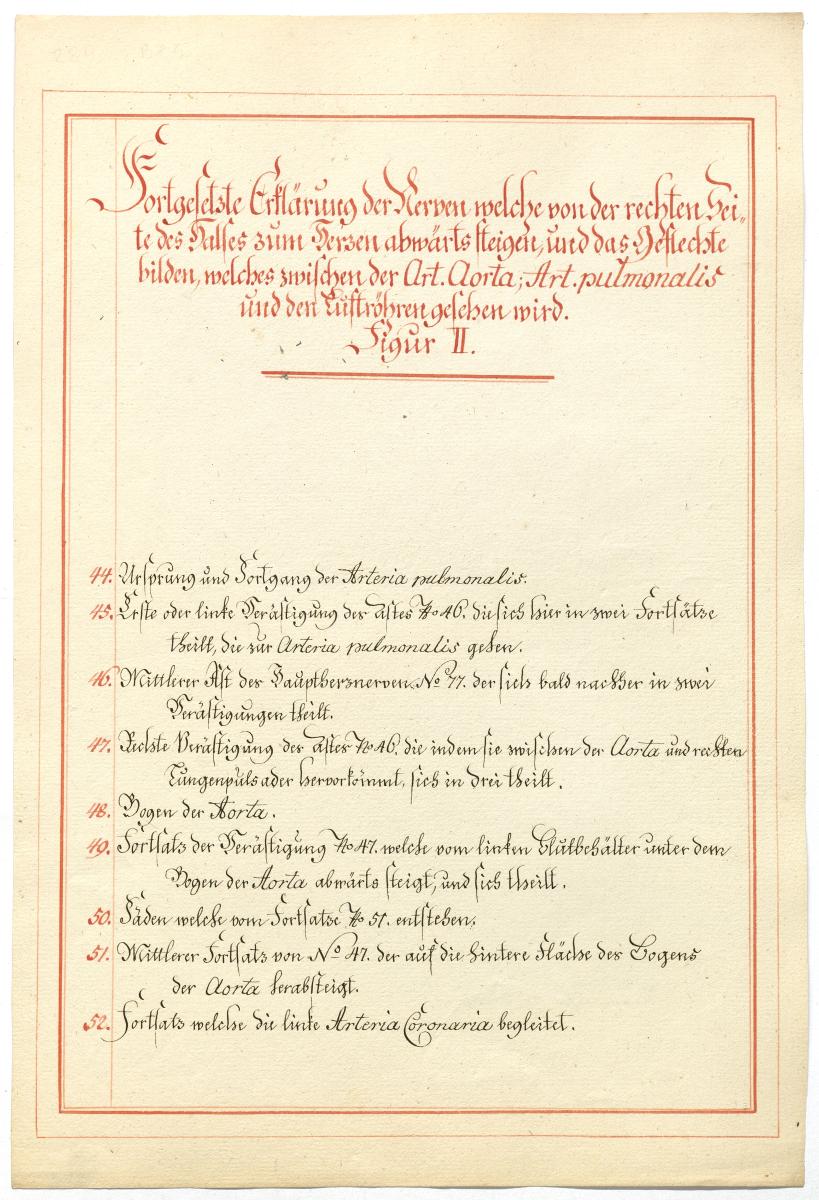 Fortgesetzte Erklärung der Nerven welche von der rechten Sei„
te des Halses zum Herzen abwärts steigen, und das Geflechte
bilden, welches zwischen der Art. Aorta, Art. pulmonalis
und den Luftröhren gesehen wird.
Figur II.
44. Ursprung und Fortgang der Arteria pulmonalis.
45. Erste oder linke Verästigung des Astes No 46. die sich hier in zwei Fortsätze
theilt, die zur Arteria pulmonalis gehen.
46. Mittlerer Ast des Hauptherznerven No 77. der sich bald nachher in zwei
Verästigungen theilt.
47. Rechte Verästigung des Astes No 46. die indem sie zwischen der Aorta und rechten
Lungenpulsader hervorkömmt, sich in drei theilt.
48. Bogen der Aorta.
49. Fortsatz der Verästigung No 47. welche vom linken Blutbehälter unter dem
Bogen der Aorta abwärts steigt, und sich theilt.
50. Fäden welche vom Fortsatze No 51. entstehen.
51. Mittlerer Fortsatz von No 47. der auf die hintere Fläche des Bogens
der Aorta herabsteigt.
52. Fortsatz welche die linke Arteria Coronaria begleitet.